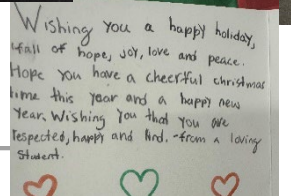 Wishing you a happy holiday,
full of hope, joy, love and peace.
Hope you have a cheerful christmas
time this year and a happy new
year. Wishing you that you are
respected, happy and kind. -from a loving
student.